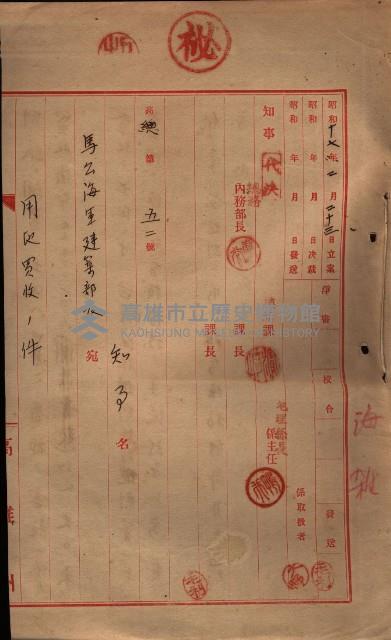 秘
昭和十七年二月二十三日立案 浄書 校合 發送
昭和 年 月 日決裁
昭和 年 月 日發送 係取扱者
知事 代決
總務
內務部長
課長
課長
課長
地理係長
係主任
高總第五二號
馬公海軍建築部長
知事名
宛
用地買收ノ件
海軍
高雄州
高雄市立歷史博物館
KAOHSIUNG MUSEUM OF HISTORY